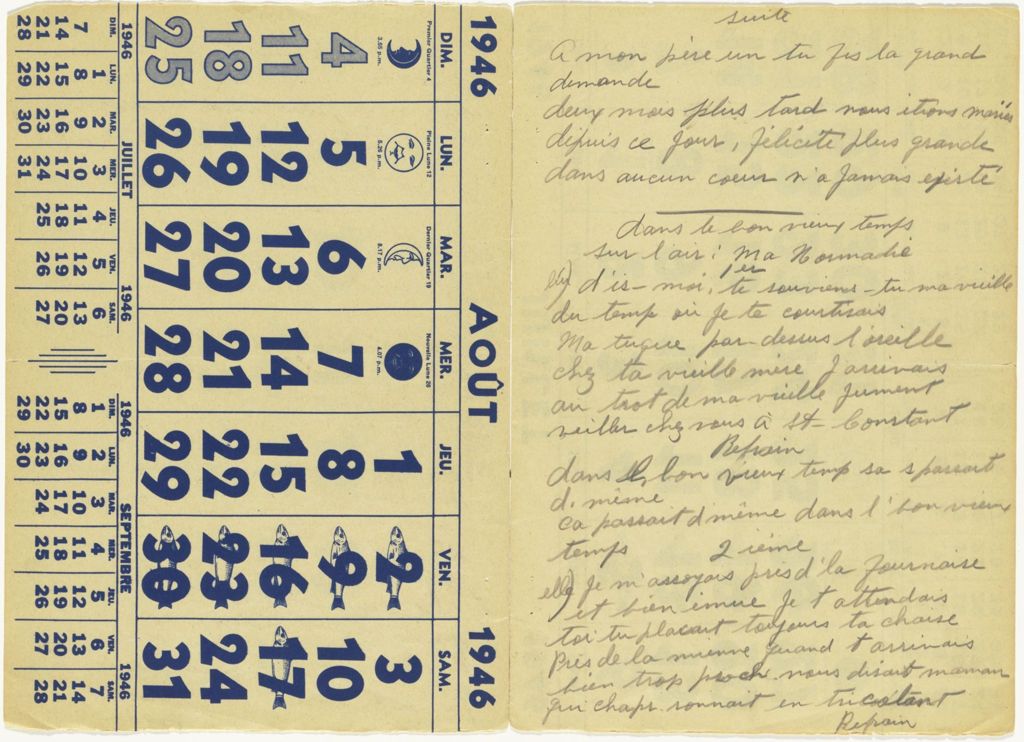 1946 AOÛT 1946
DIM. LUN. MAR. MER. JEU. VEN. SAM.
Premier Quartier 4
3.55 p.m.
Pleine Lune 12
5.26 p.m.
Dernier Quartier 19
8.17 p.m.
Nouvelle Lune 26
4.07 p.m.
1 2 3
4 5 6 7 8 9 10
11 12 13 14 15 16 17
18 19 20 21 22 23 24
25 26 27 28 29 30 31
1946 JUILLET 1946
DIM. LUN. MAR. MER. JEU. VEN. SAM.
1 2 3 4 5 6
7 8 9 10 11 12 13
14 15 16 17 18 19 20
21 22 23 24 25 26 27
28 29 30 31
1946 SEPTEMBRE 1946
DIM. LUN. MAR. MER. JEU. VEN. SAM.
1 2 3 4 5 6 7
8 9 10 11 12 13 14
15 16 17 18 19 20 21
22 23 24 25 26 27 28
29 30
suite
A mon père un tu fis la grand
demande
deux mois plus tard nous étions mariés
depuis ce jour, félicité plus grande
dans aucun coeur n'a jamais existé
dans le bon vieux temps
sur l'air: Ma Normadie
1er
dis-moi, te souviens-tu ma vieille
du temps où je te courtisais
Ma tuque par-dessus l'oreille
chez ta vieille mère J'arrivais
au trot de ma vieille jument
veiller chez vous à St-Constant
Refrain
dans l'bon vieux temp sa s'passait
d. même
Ca passait d'même dans l'bon vieux
temps
2ième
elle) Je m'assoyais près d'la fournaise
et bien émue Je t'attendais
toi tu placait toujours ta chaise
Près de la mienne quand t'arrivais
bien trop proch. nous disait maman
qui chap. ronnait en tricotant
Refrain